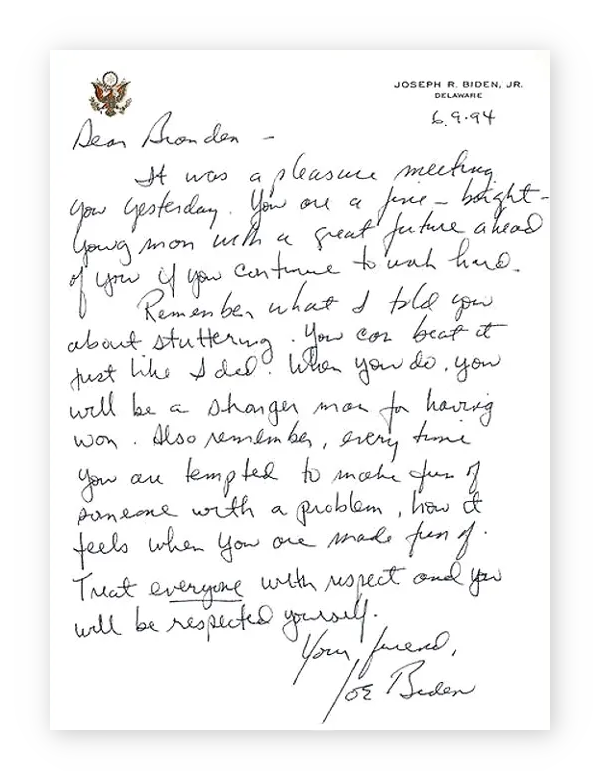 JOSEPH R. BIDEN, JR.
DELAWARE
6.9.94
Dear Branden -
It was a pleasure meeting
you yesterday. You are a fine - bright -
young man with a great future ahead
of you if you continue to work hard.
Remember what I told you
about stuttering. You can beat it
just like I did. When you do, you
will be a stronger man for having
won. Also remember, every time
you are tempted to make fun of
someone with a problem, how it
feels when you are made fun of.
Treat everyone with respect and you
will be respected yourself.
Your friend,
Joe Biden